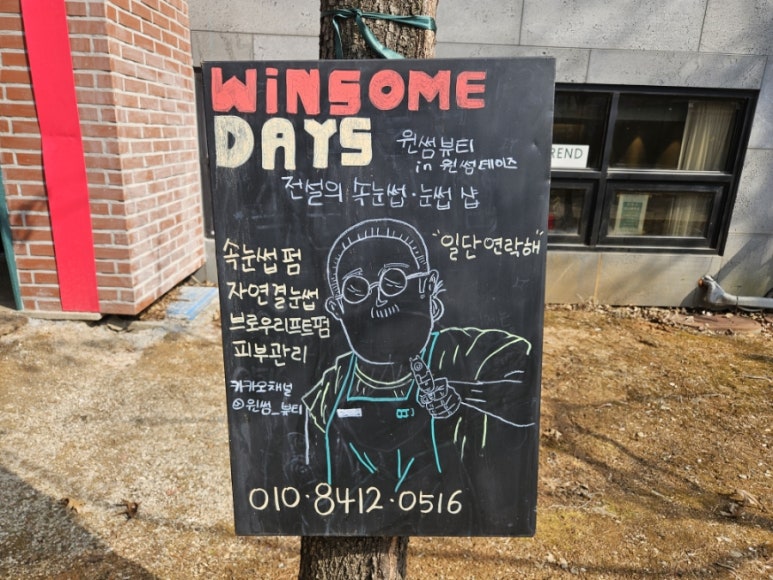 WINSOME
DAYS
윈썸뷰티
in 윈썸데이즈
전설의 속눈썹·눈썹 샵
"일단 연락해"
속눈썹 펌
자연결눈썹
브로우리프트펌
피부관리
카카오채널
@윈썸_뷰티
010·8412·0516
REND